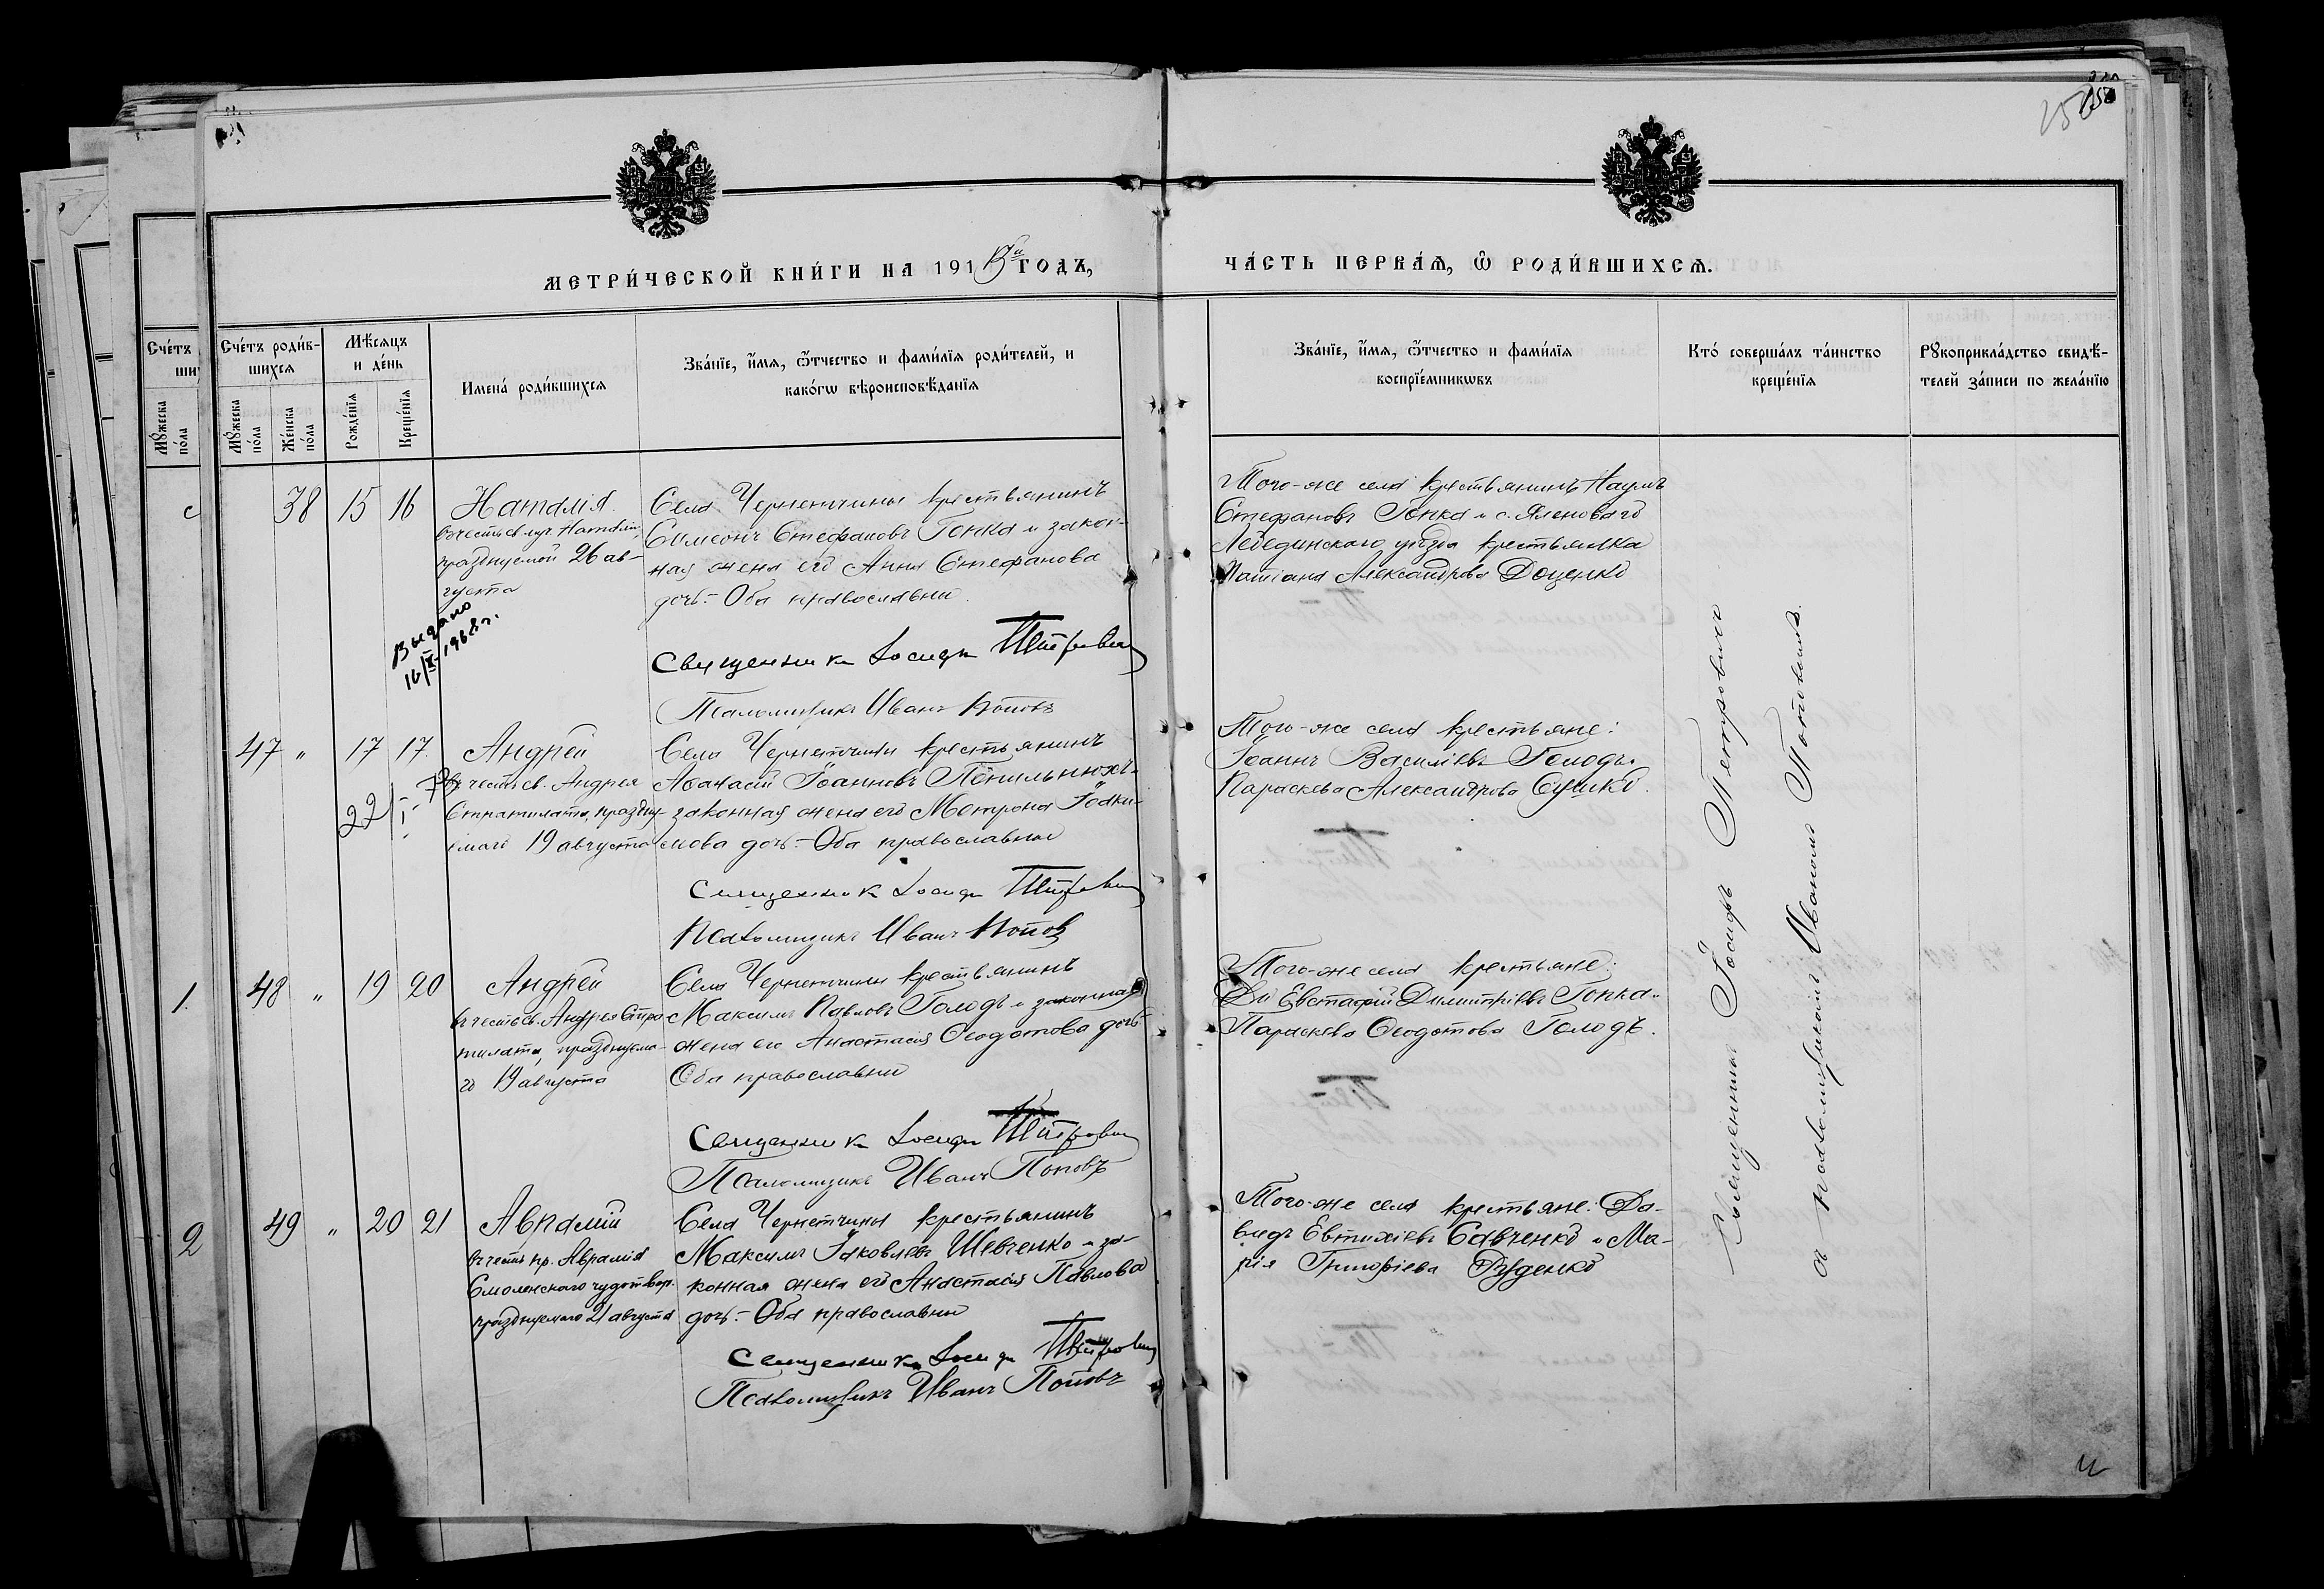 МЕТРИ́ЧЕСКОЙ КНИ́ГИ НА 1913й ГОДЪ,
ЧА́СТЬ ПЕРВА́Ѧ, Ѡ РОДИ́ВШИХСѦ.
Сче́тъ роди́в-
шихсѧ
Мꙋ́жеска по́ла
Же́нска по́ла
Мѣ́сѧцъ
и де́нь
Рожде́нїѧ
Креще́нїѧ
Имена̀ роди́вшихсѧ
Зва́нїе, и́мѧ, ѻ́тчество и фами́лїѧ роди́телей, и
како́гѡ вѣроисповѣ́данїѧ
Зва́нїе, и́мѧ, ѻ́тчество и фами́лїѧ
воспрїе́мникѡвъ
Кто́ соверша́лъ та́инство
креще́нїѧ
Рꙋкоприкла́дство свидѣ́-
телей за́писи по жела́нїю
38 15 16 Наталія
въ честь св. муч. Наталіи,
празднуемой 26 ав-
густа
Выдано
16/X 1968 г.
Села Чернетчины крестьянинъ
Симеонъ Стефановъ Гопка и закон-
ная жена его Анна Стефанова
дочь.- Оба православны.
Священник Иосиф Петрович
Псаломщикъ Иванъ Поповъ
Того-же села крестьянинъ Наумъ
Стефановъ Гопка и с.
Лебединскаго уѣзда крестьянка
Татіана Александрова Доценко
47 " 17 17. Андрей
въ честь св. Андрея
Стратилата, праздну-
емаго 19 августа
22/I-
Села Чернетчины крестьянинъ
Аѳанасій Іоанновъ
законная жена его Матрона Іоаки-
мова дочь.- Оба православны
Священник Иосиф Петрович
Псаломщикъ Иванъ Попов
Того-же села крестьяне:
Іоаннъ Василіевъ Голодъ и
Параскева Александрова Сушко.
1. 48 " 19 20 Андрей
въ честь св. Андрея Стра-
тилата, празднуема-
го 19 августа
Села Чернетчины крестьянинъ
Максимъ Павловъ Голодъ и законная
жена его Анастасія Ѳеодотова дочь.-
Оба православны
Священник Иосиф Петрович
Псаломщикъ Иванъ Поповъ
Того-же села крестьяне:
Евстафій Димитріевъ Гопка и
Параскева Ѳеодотова Голодъ.
2 49 " 20 21 Авраамій
въ честь пр. Авраамія
Смоленскаго чудотвор.
празднуемаго 21 августа
Села Чернетчины крестьянинъ
Максимъ Іаковлевъ Шевченко и за-
конная жена его Анастасія Павлова
дочь.- Оба православны
Священник Иосиф Петрович
Псаломщикъ Иванъ Поповъ
Того-же села крестьяне: Да-
видъ Евтихіевъ Савченко и Ма-
рія Григоріева Руденко
Священникъ Іосифъ Петровичъ
съ псаломщикомъ Иваномъ Поповымъ.